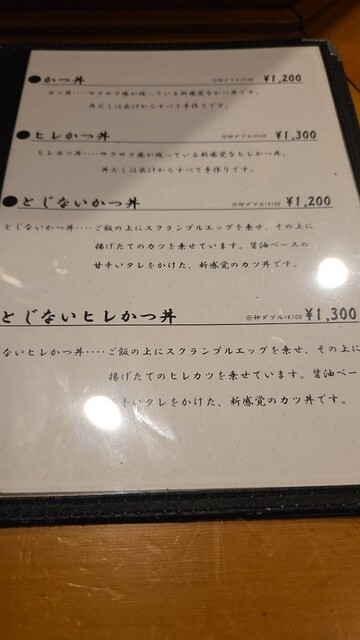 ●かつ丼 ※卵ダブル+¥100 ¥1,200
カツ丼････サクサク感が残っている新感覚なかつ丼です。
丼だしは出汁からすべて手作りです。
●ヒレかつ丼 ※卵ダブル+¥100 ¥1,300
ヒレカツ丼････サクサク感が残っている新感覚なヒレかつ丼。
丼だしは出汁からすべて手作りです。
●とじないかつ丼 ※卵ダブル+¥100 ¥1,200
とじないかつ丼････ご飯の上にスクランブルエッグを乗せ、その上に
揚げたてのカツを乗せています。醤油ベースの
甘辛いタレをかけた、新感覚のカツ丼です。
とじないヒレかつ丼 ※卵ダブル+¥100 ¥1,300
ないヒレかつ丼････ご飯の上にスクランブルエッグを乗せ、その上に
揚げたてのヒレカツを乗せています。醤油ベー
辛いタレをかけた、新感覚のカツ丼です。